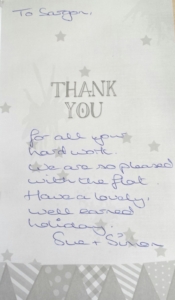 To Saigon.
THANK
YOU
for all your
hard work.
We are so pleased
with the flat
Have a lovely,
well earned
holiday.
Sue + Simon